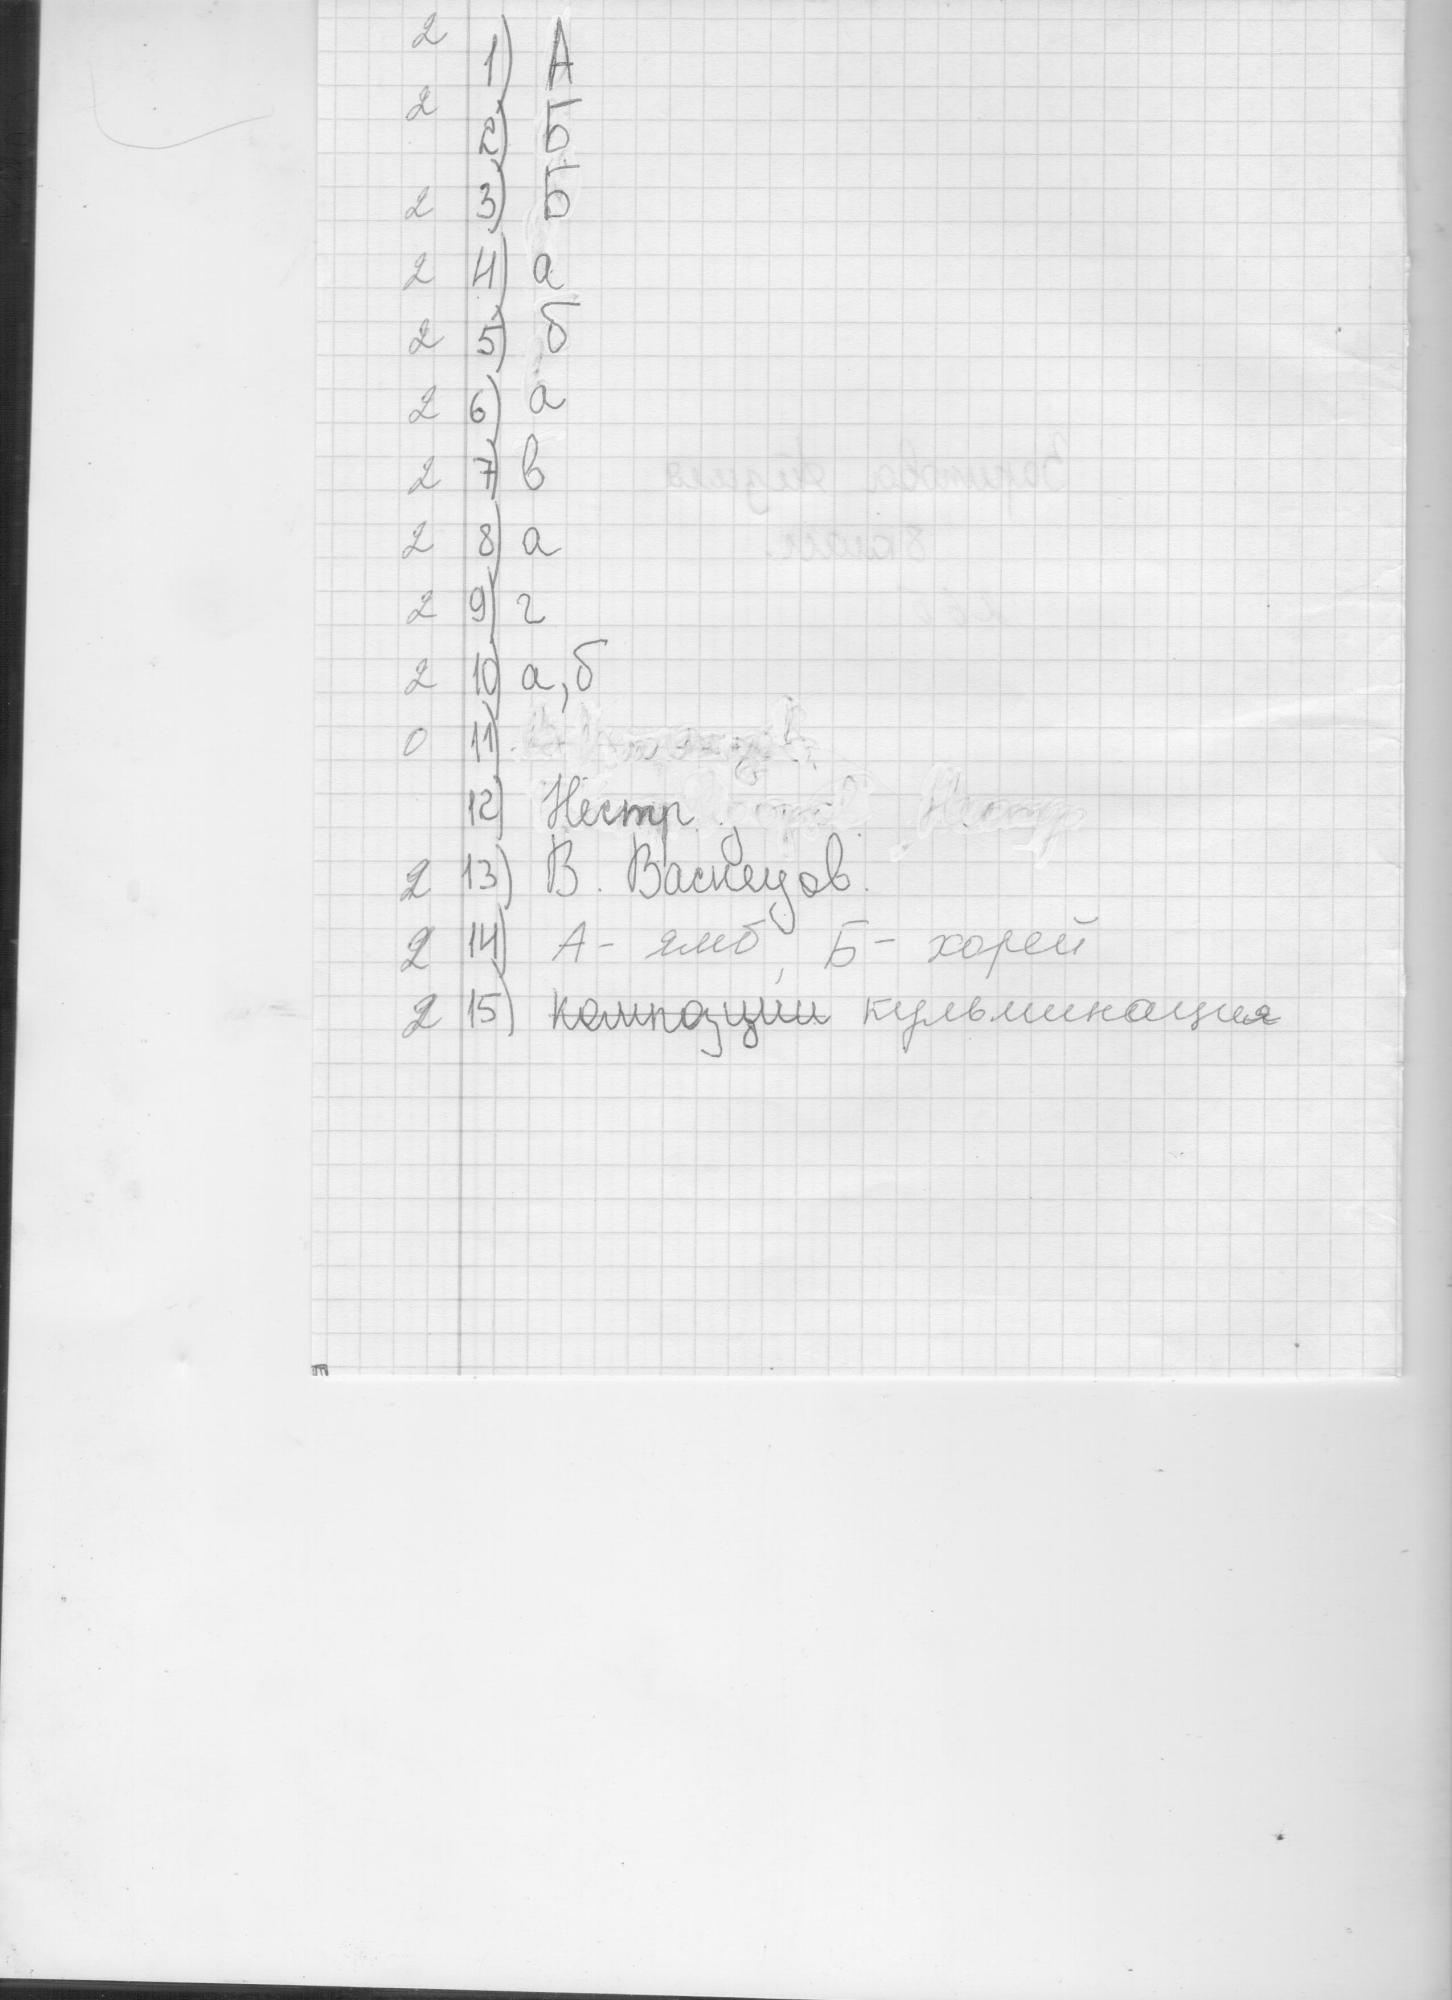 2 1) А
2 2) Б
2 3) Б
2 4) а
2 5) б
2 6) а
2 7) в
2 8) а
2 9) г
2 10) а, б
0 11)
12) Нестр
2 13) В. Васнецов.
2 14) А- ямб, Б- хорей
2 15) композции кульминация